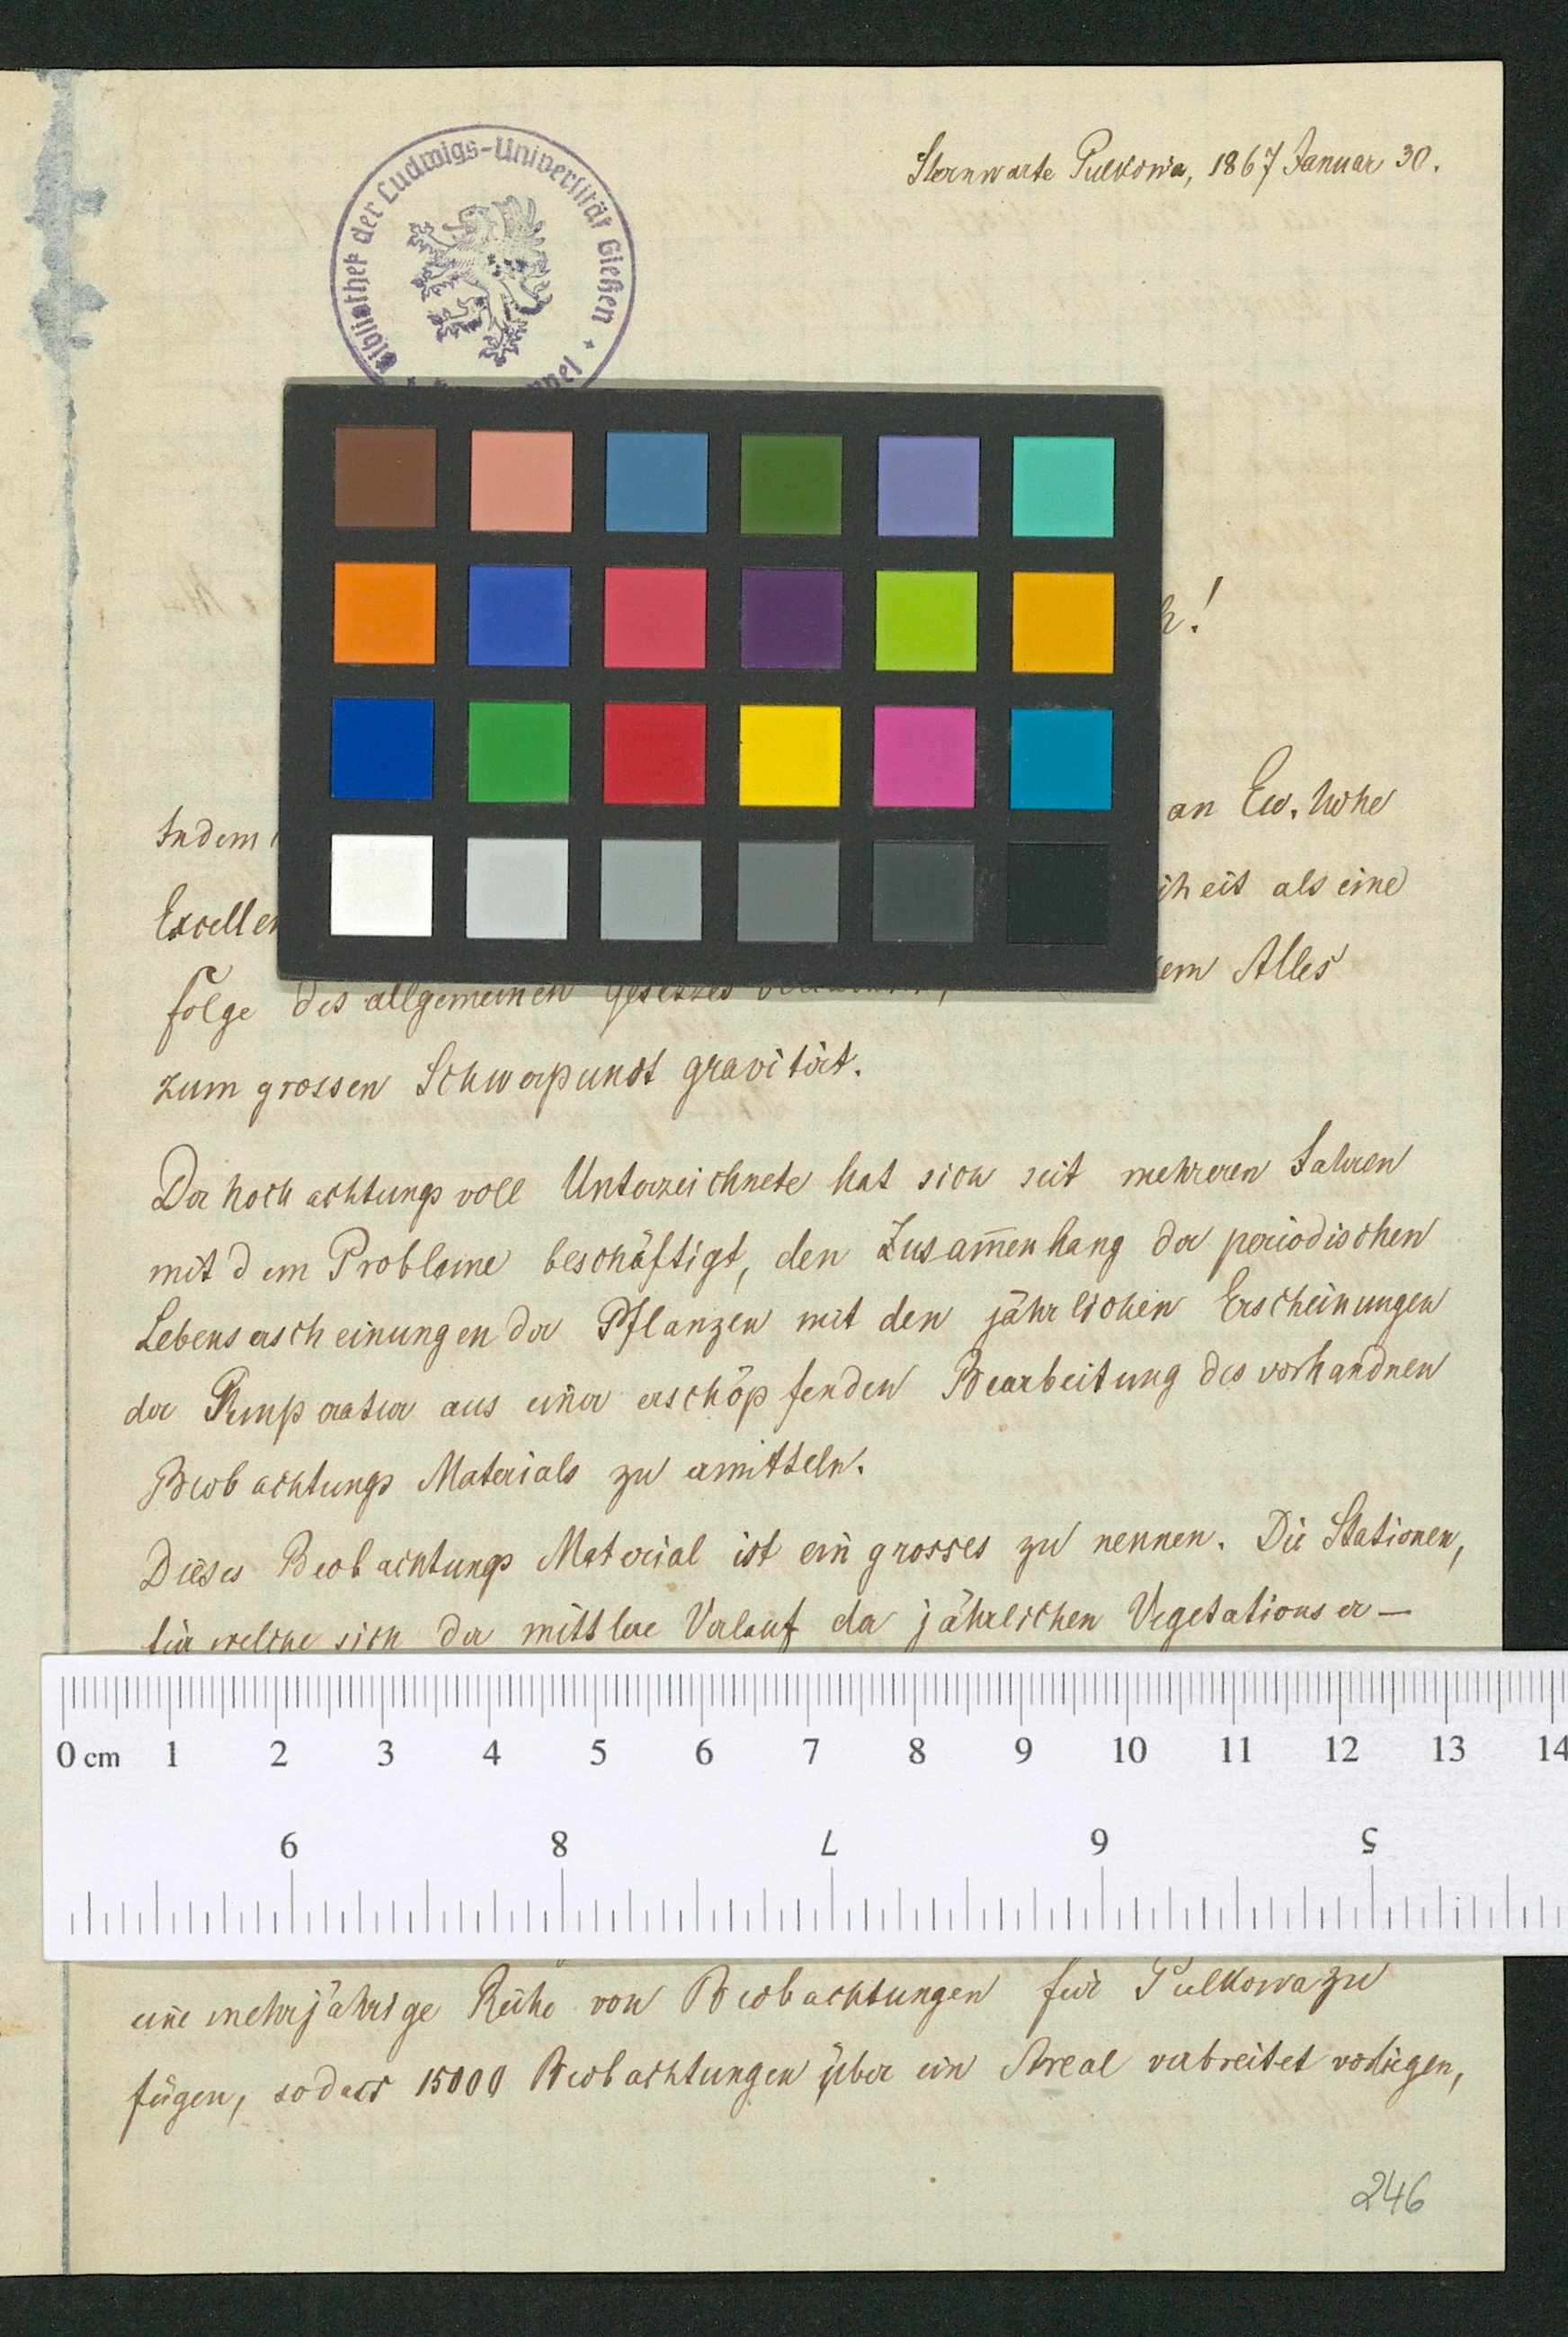 Sternwarte Pulkowa, 1867 Januar 30.
Bibliothek der Ludwigs-Universität Gießen
h!
Indem
an Ew. hohe
Excellen
iheit als eine
folge des allgemeinen Gesetzes
em Alles
zum grossen Schwerpunct gravitirt.
Der hochachtungsvoll Unterzeichnete hat sich seit mehreren Jahren
mit dem Probleme beschäftigt, den Zusam̅enhang der periodischen
Lebenserscheinungen der Pflanzen mit den jährlichen Erscheinungen
der Temperatur aus einer erschöpfenden Bearbeitung des vorhandnen
Beobachtungs Materials zu ermitteln.
Dieses Beobachtungs Material ist ein grosses zu nennen. Die Stationen,
für welche sich der mittlere Verlauf der jährlichen Vegetationser—
0 cm 1 2 3 4 5 6 7 8 9 10 11 12 13 14
9 8 7 6 5
eine mehrjährige Reihe von Beobachtungen für Pulkowa zu
fügen, sodass 15000 Beobachtungen über ein Areal verbreitet vorliegen,
246